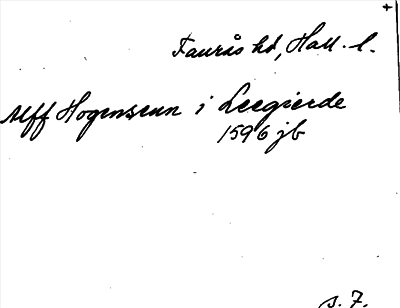 Faurås hd, Hall. l.
Alff Hogensenn i Leegierde
1596 jb
s. 7.